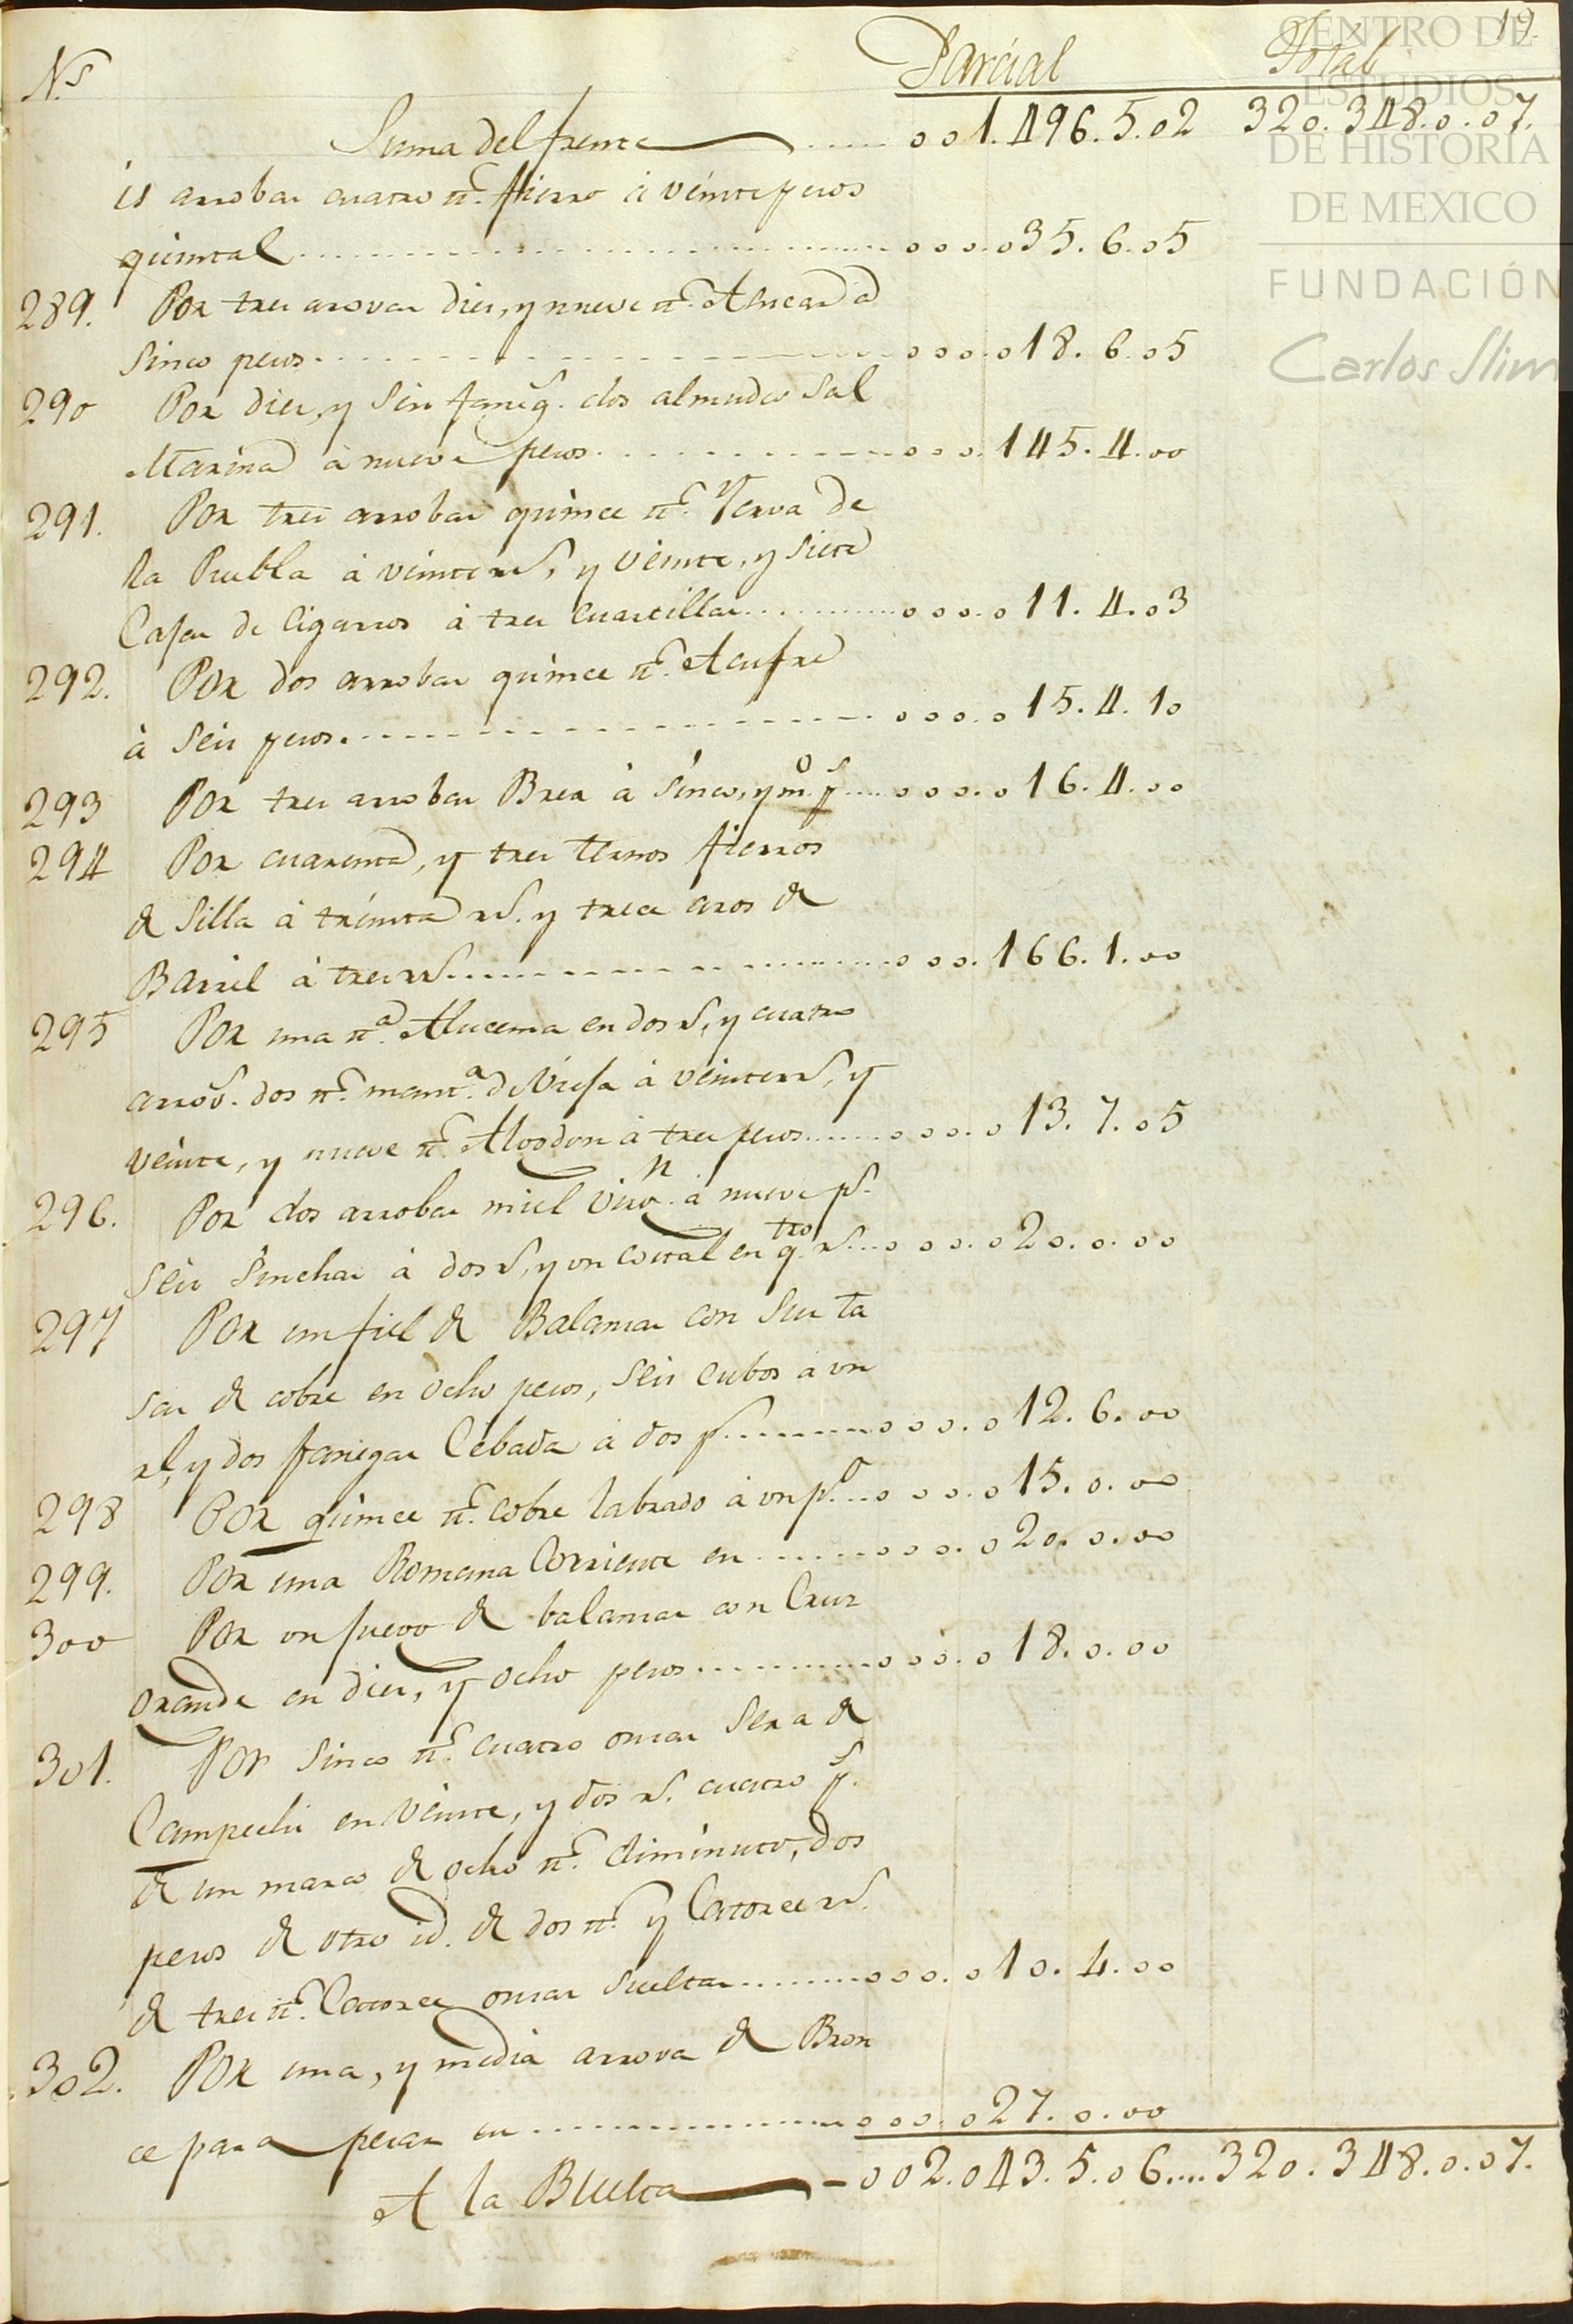 19.
CENTRO DE
ESTUDIOS
DE HISTORIA
DE MEXICO
FUNDACIÓN
Carlos Slim
N.s Parcial Total
Suma del frente ...... 001.496.5.02 320.348.0.07.
is arrobas cuatro lbs. fierro á veinte pesos
quintal ...... 000.035.6.05
289. Por tres arovas diez, y nueve lbs. Asucar á
sinco pesos ...... 000.018.6.05
290 Por diez, y seis faneg.s dos almudes Sal
Marina á nueve pesos ...... 000.145.4.00
291. Por tres arrobas quince lbs. Yerva de
la Puebla á veinte rs, y veinte, y siete
Cajas de Cigarros á tres cuartillas ...... 000.011.4.03
292. Por dos arrobas quince lbs. Asufre
á seis pesos ...... 000.015.4.10
293 Por tres arrobas Brea á sinco, y m.o ps ...... 000.016.4.00
294 Por cuarenta, y tres ternos fierros
de Silla á treinta rs. y trece aros de
Barril á tres rs ...... 000.166.1.00
295 Por una lb.a Alucema en dos rs, y cuatro
arrobs. dos lbs. mant.a de Vieja á veinte rs, y
veinte, y nueve lbs. Algodon á tres pesos ...... 000.013.7.05
296. Por dos arrobas miel Virg.n á nueve ps.
seis sinchas á dos rs, y un costal en q.tro rs ...... 000.020.0.00
297 Por un fiel de Balansas con sus ta
sas de cobre en ocho pesos, seis cubos á un
rl, y dos fanegas Cebada á dos ps ...... 000.012.6.00
298 Por quince lbs. cobre labrado á un p.o ...... 000.015.0.00
299. Por una Romana Corriente en ...... 000.020.0.00
300 Por un juego de balansas con Cruz
grande en diez, y ocho pesos ...... 000.018.0.00
301. Por sinco lbs. cuatro onsas Sera de
Campeche en veinte, y dos rs. cuatro ps.
de un marco de ocho lbs. diminuto, dos
pesos de otro id. de dos lbs. y Catorce rs.
de tres lbs. Catorce onsas sueltas ...... 000.010.4.00
302. Por una, y media arrova de Bron
ce para pesar en ...... 000.027.0.00
A la Buelta — 002.043.5.06....320.348.0.07.